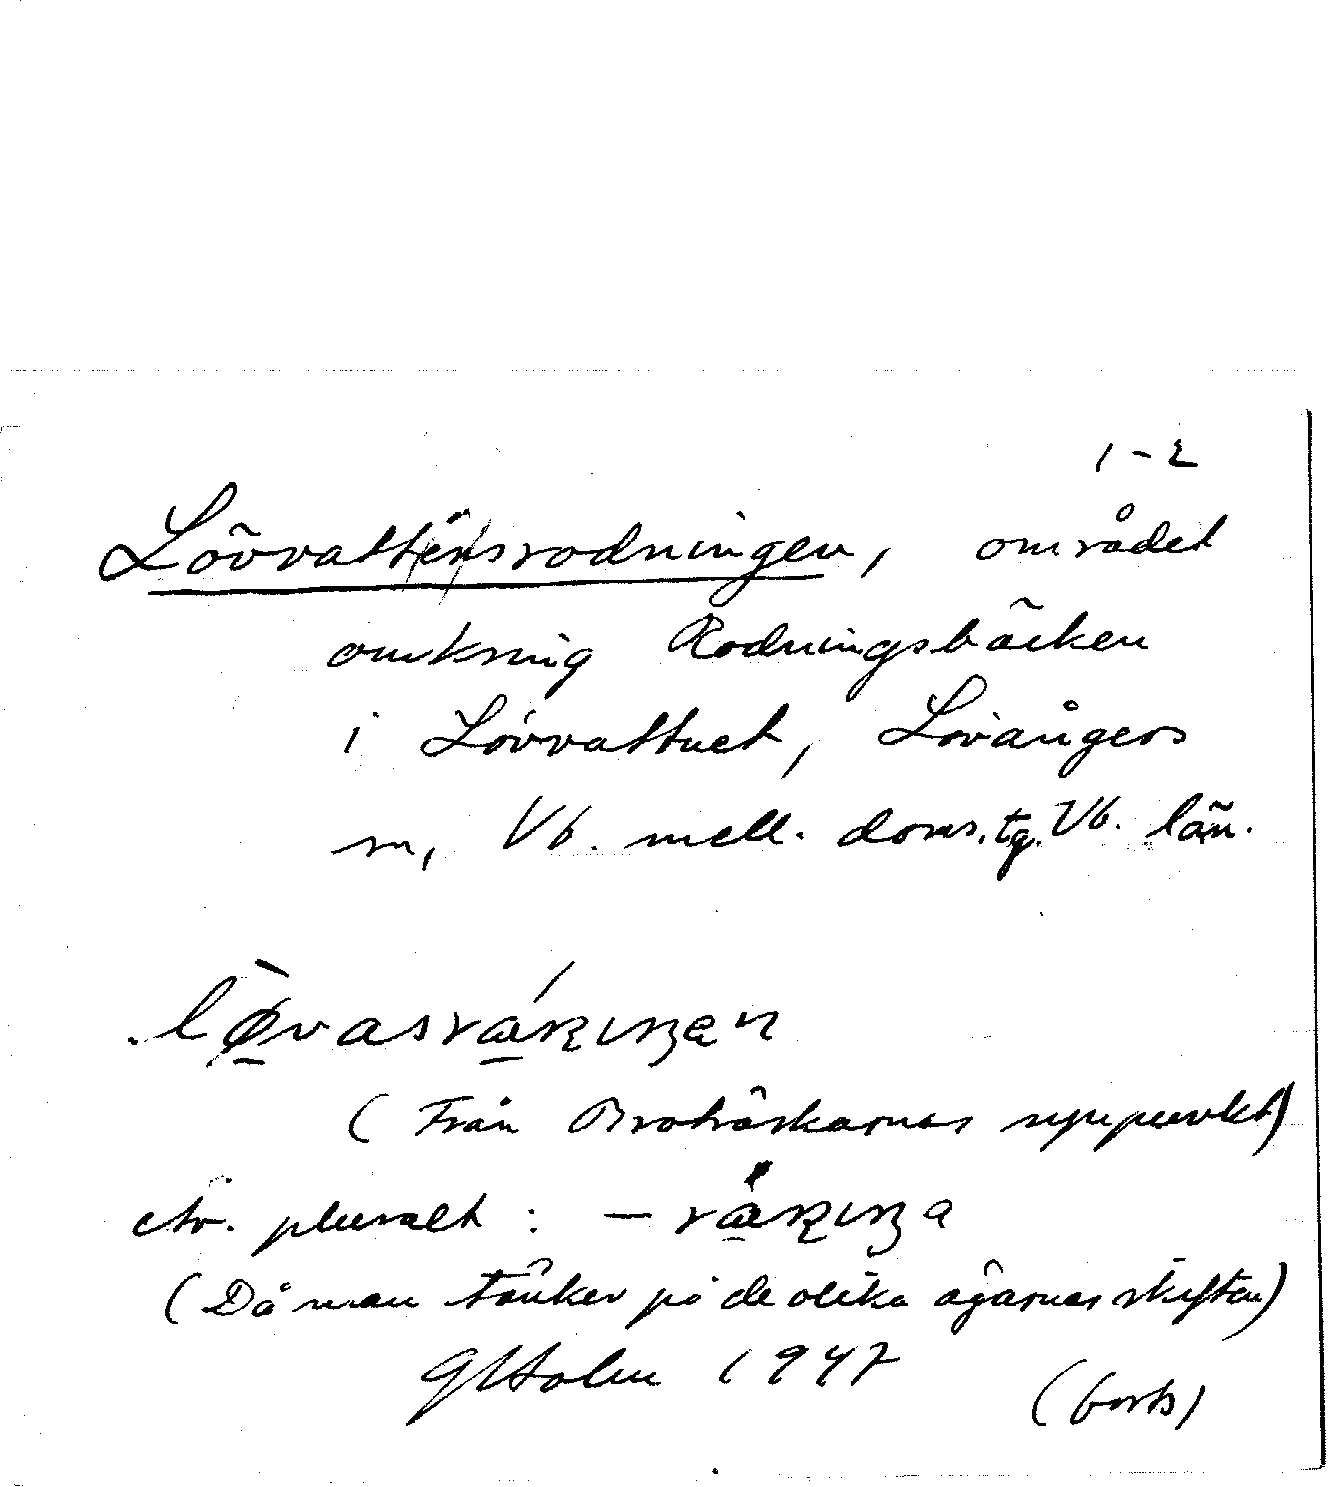 1-2
Lövvattensrodningen, området
omkring Rodningsbäcken
i Lövvattnet, Lövångers
sn, Vb. mell. doms.tg. Vb. län.
(Från Brotråskarnas synpunkt)
etv. pluralt : —
(Då man tänker på de olika ägarnas skiften)
G Holm 1947
(forts)